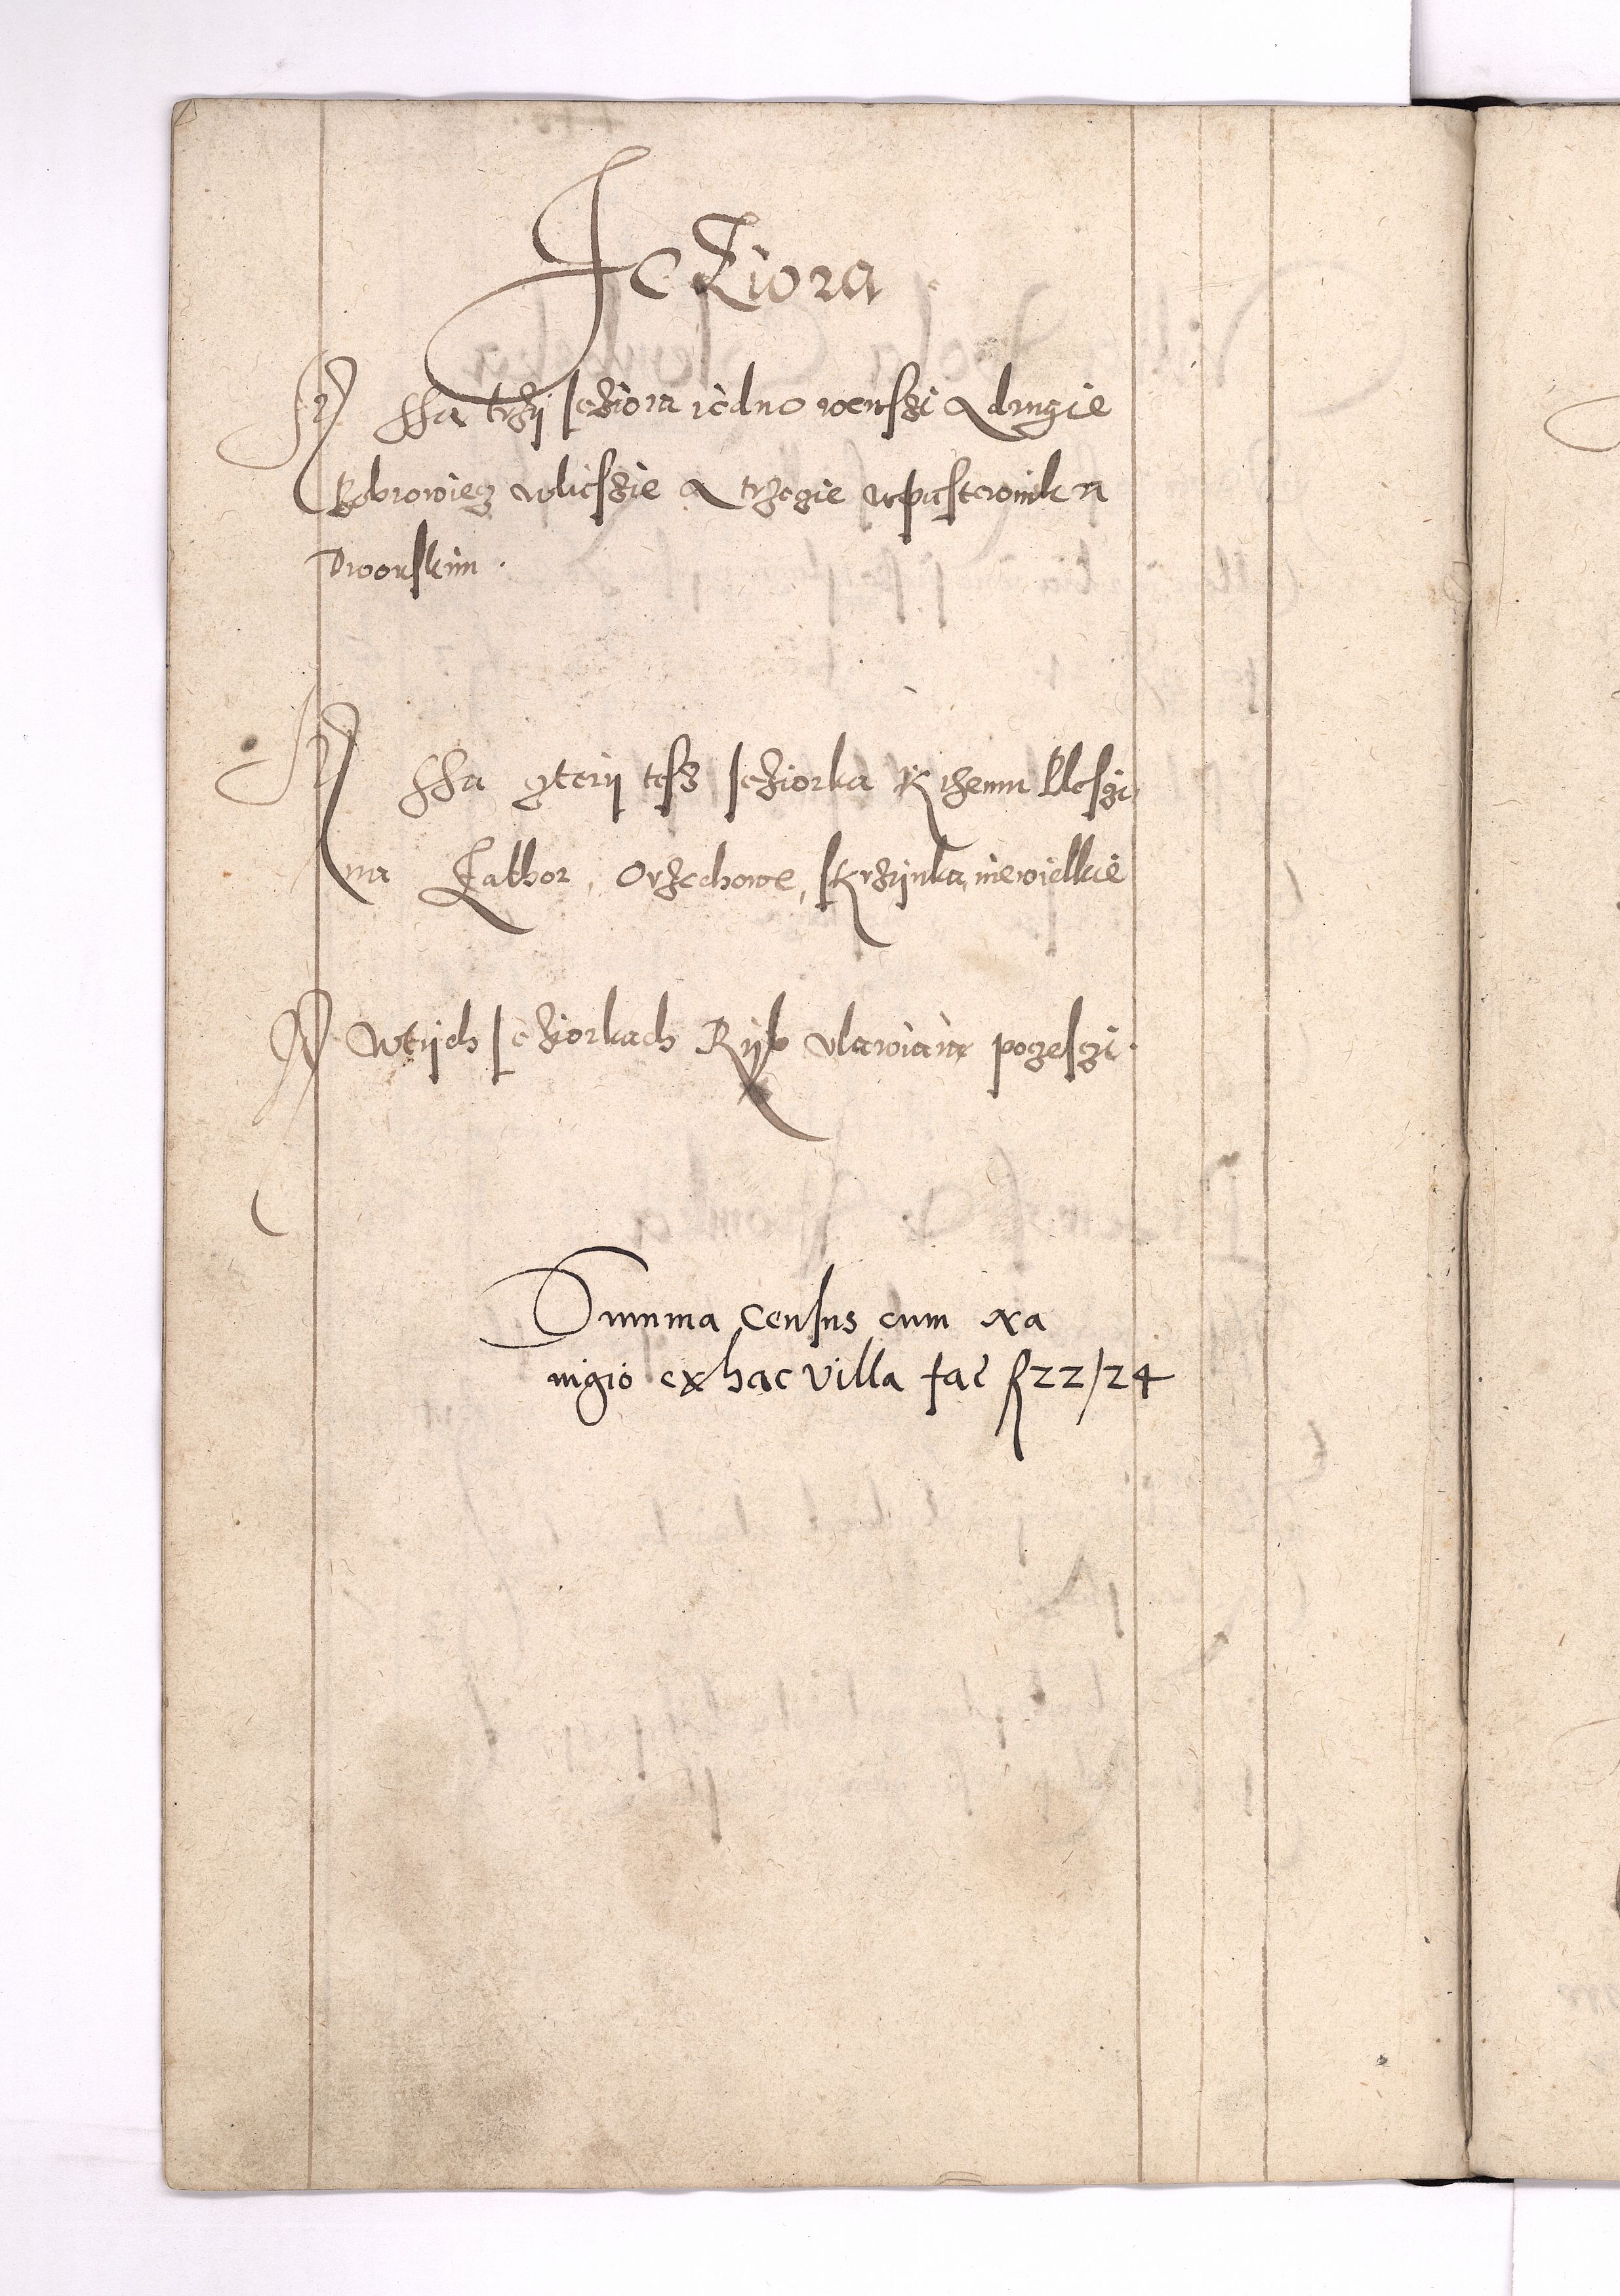 Jeziora
Ssa trzÿ Jeziora iedno wewsszi A drugie
Bobrowiecz wliesszie A trzecie wpastewniku
Dworskim .
Ssa cztery tesz Jeziorka
na Zathor, Orzechowe, Skrzÿnka, niewielkie
Wtÿch Jeziorkach Rÿb vlawia poczesczi .
Summa Census cum exa
nigio ex hac villa fac fl 22/24